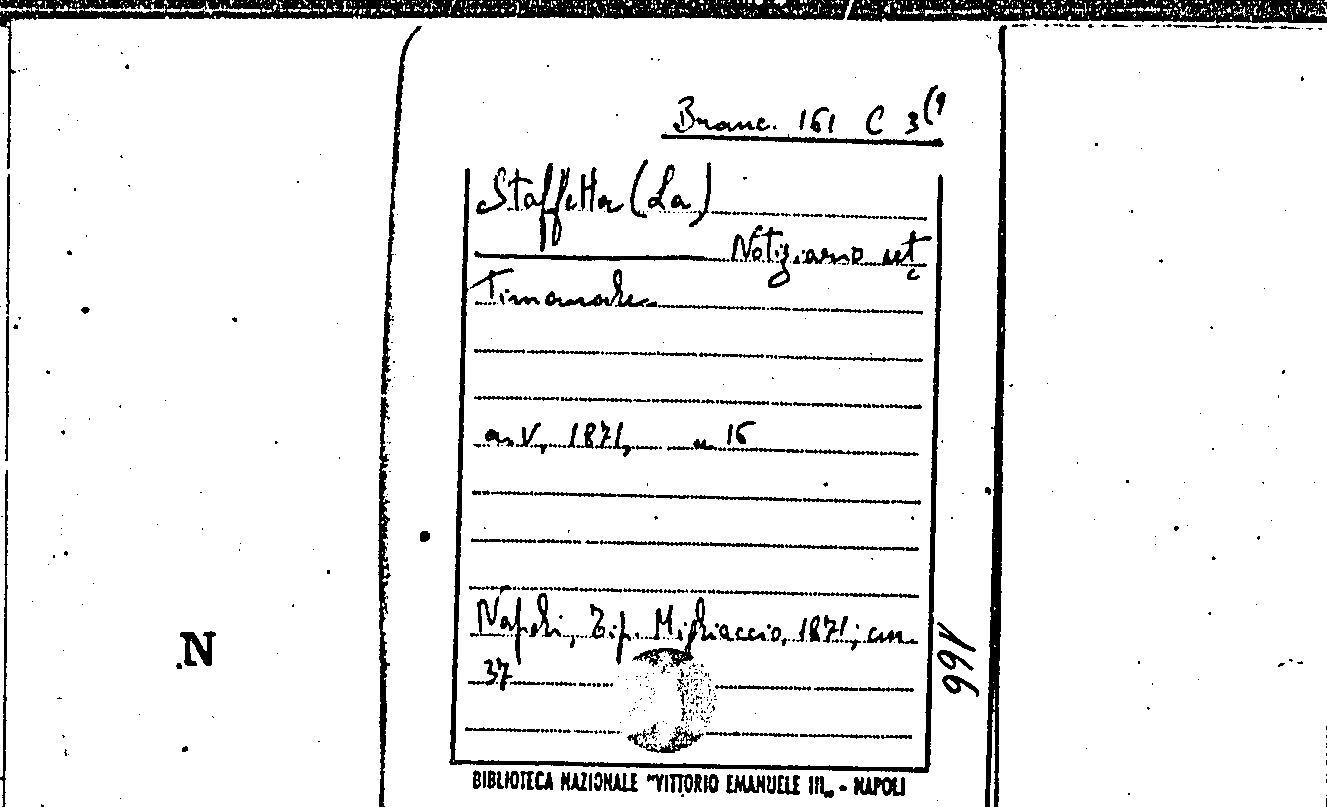 Branc. 161 C 3(9
Staffetta (La)
Notiziario set
timanale
a. V, 1871, n. 16
Napoli, Tip. Migliaccio, 1871; cm.
37
166
N
BIBLIOTECA NAZIONALE "VITTORIO EMANUELE III„ - NAPOLI